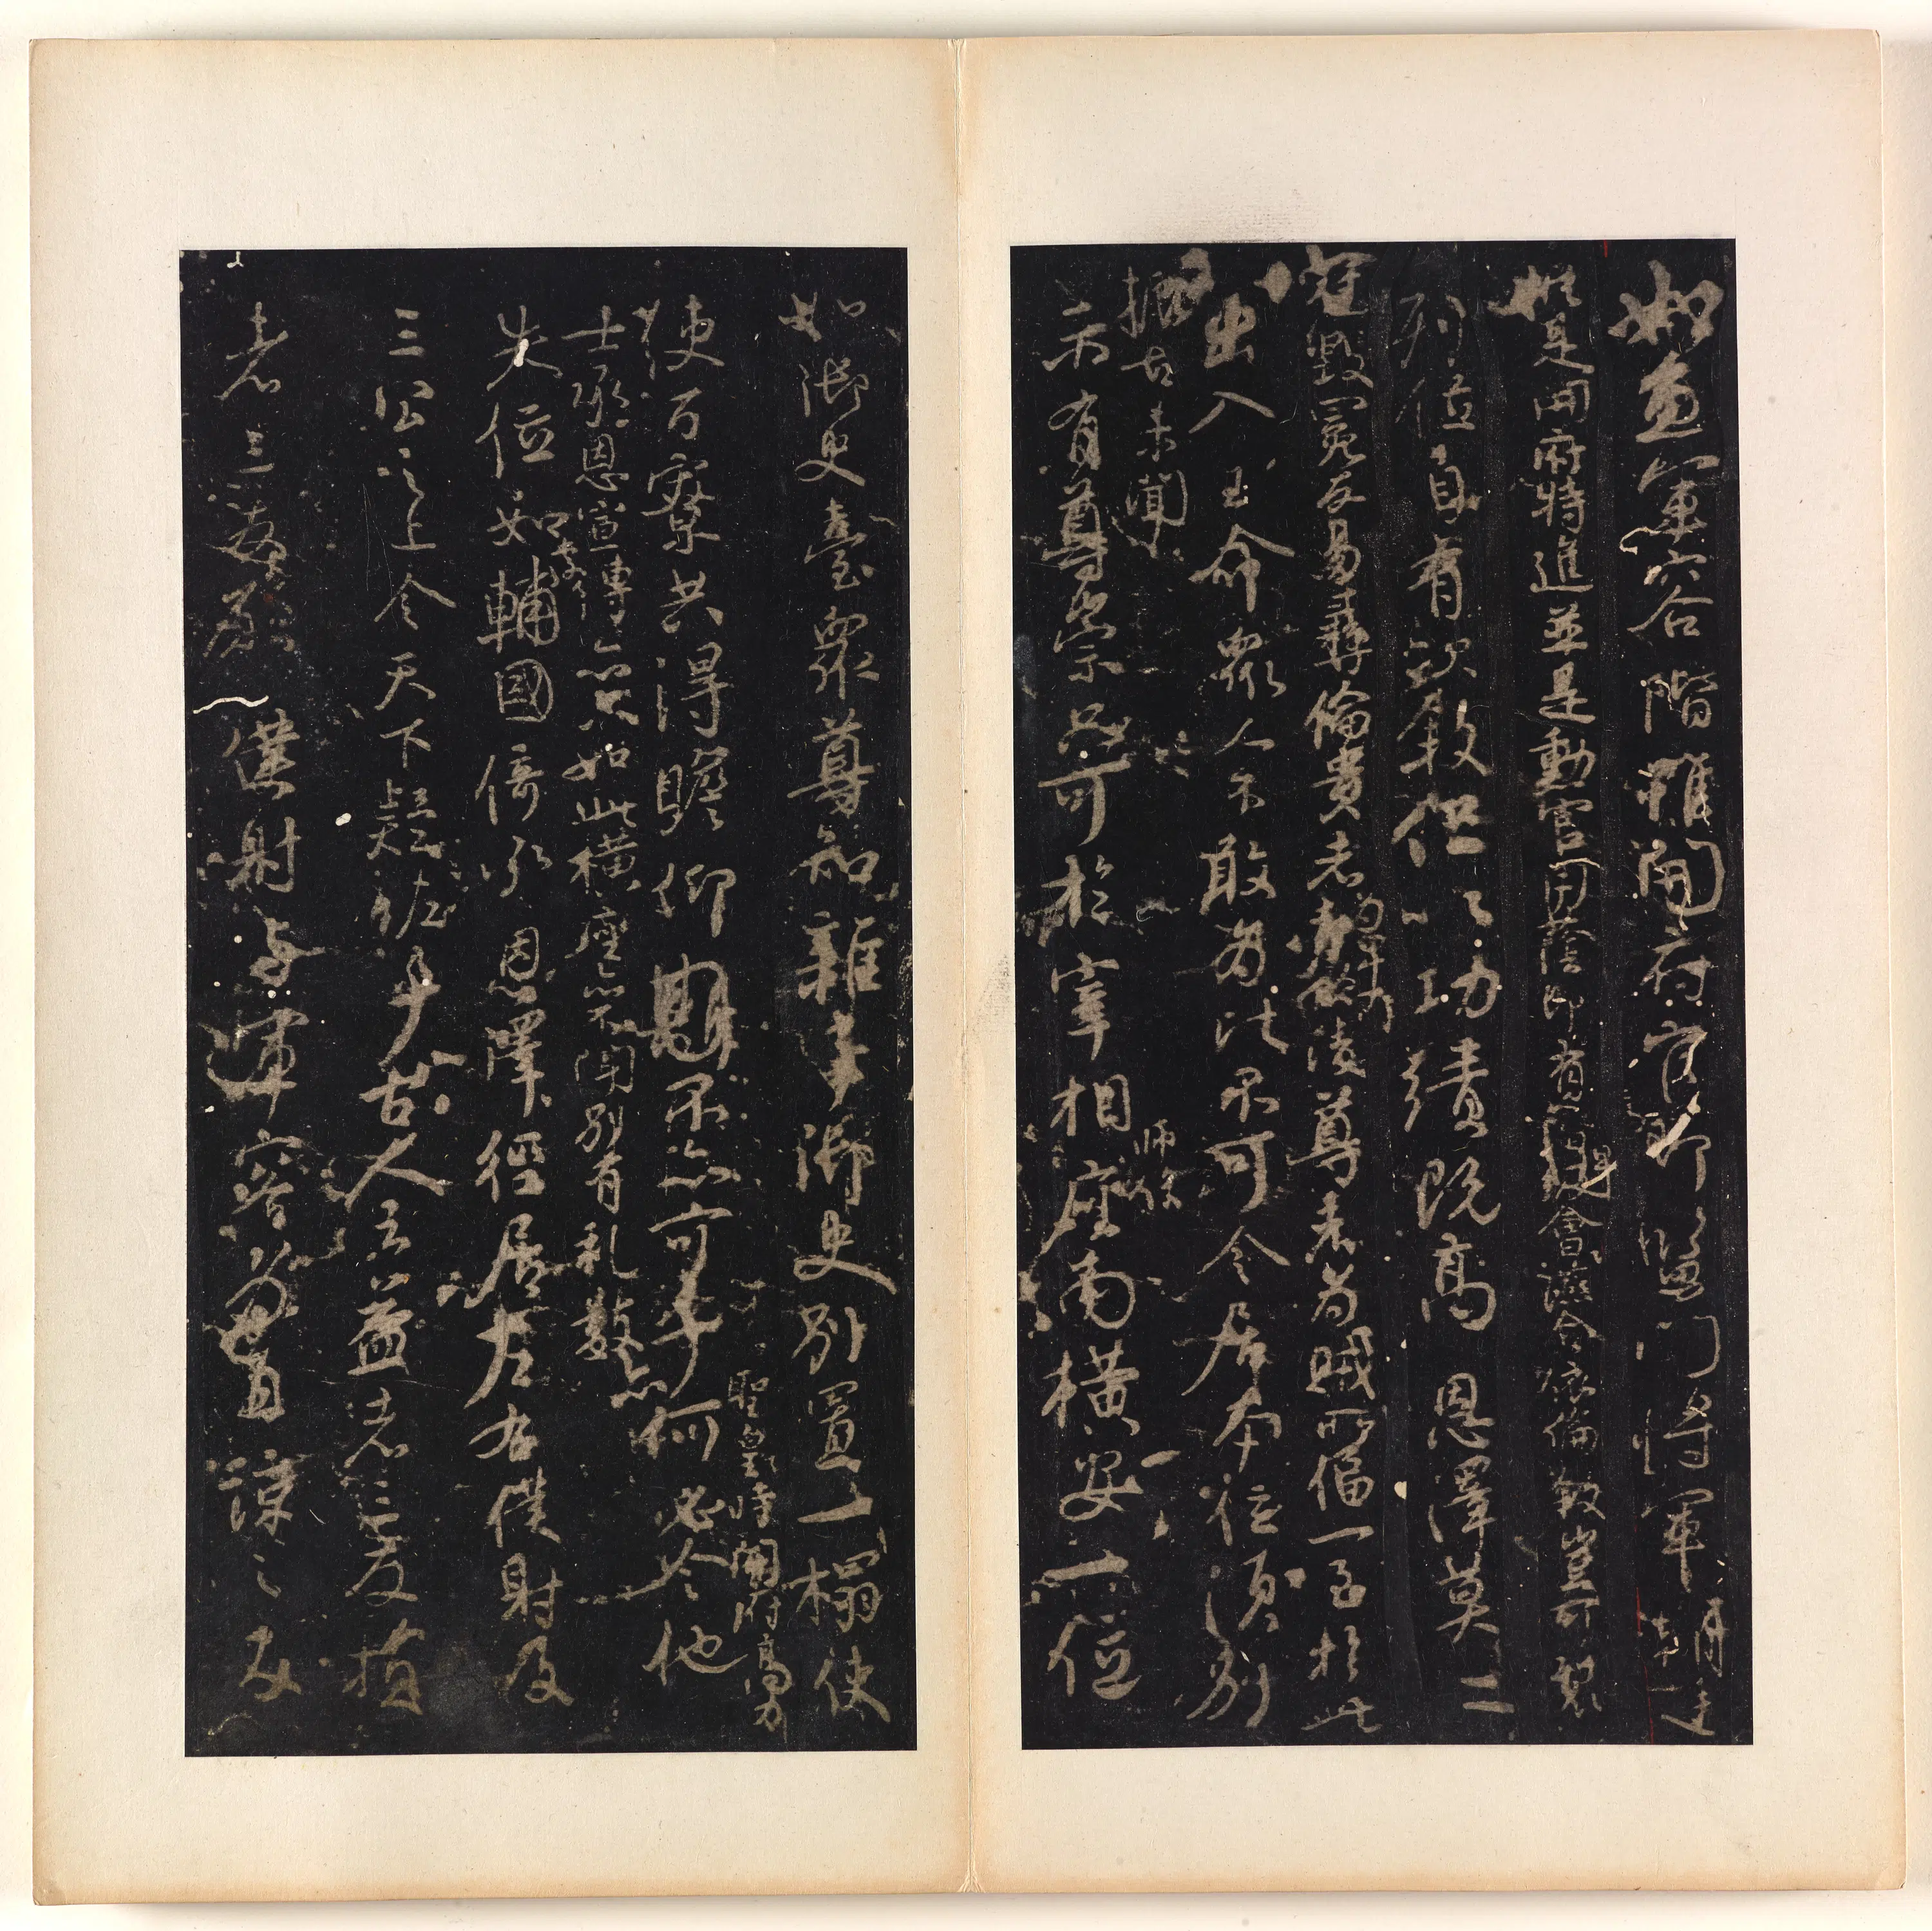 如魚軍容階雖開府官即監門將軍朝廷
如是開府特進並是勳官用蔭即有高卑會讌合依倫叙豈可裂
列位自有次叙但以功績既高恩澤莫二
冠毀冕反易彝倫貴者為卑所凌尊者為賊所偪一至於此
出入王命眾人不敢為比不可令居本位須別
振古未聞
示有尊崇只可於宰相師保座南橫安一位
如御史臺眾尊知雜事御史別置一榻使
聖皇時開府高力
使百寮共得瞻仰不亦可乎何必令他
士承恩宣傳亦只如此橫座亦不聞別有礼數亦
失位如李輔國倚承恩澤徑居左右僕射及
三公之上令天下疑怪乎古人云益者三友損
者三友願僕射与軍容為直諒之友